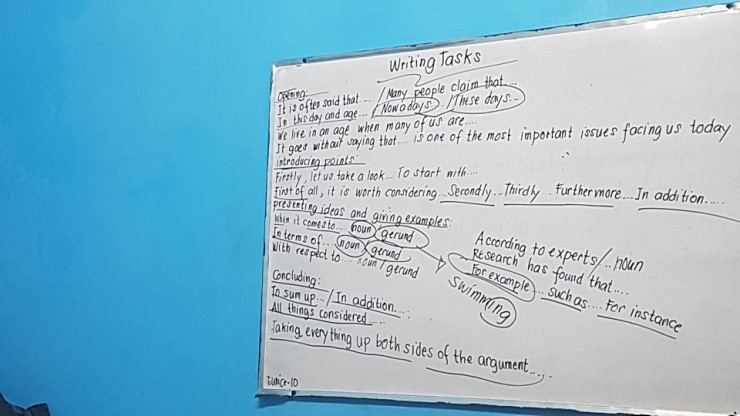 Writing Tasks
Opening:
It is often said that.... /Many people claim that....
In this day and age... /Nowadays /These days...
We live in an age when many of us are....
It goes without saying that.... is one of the most important issues facing us today
introducing points:
Firstly, let us take a look... To start with....
First of all, it is worth considering... Secondly... Thirdly.. Furthermore.... In addition.....
presenting ideas and giving examples:
When it comes to... noun gerund
In terms of... noun/gerund
With respect to.... noun/gerund
According to experts/... noun
Research has found that....
For example... such as.... For instance
Swimming
Concluding:
To sum up... / In addition....
All things considered....
Taking everything up both sides of the argument.....
Eunice-10